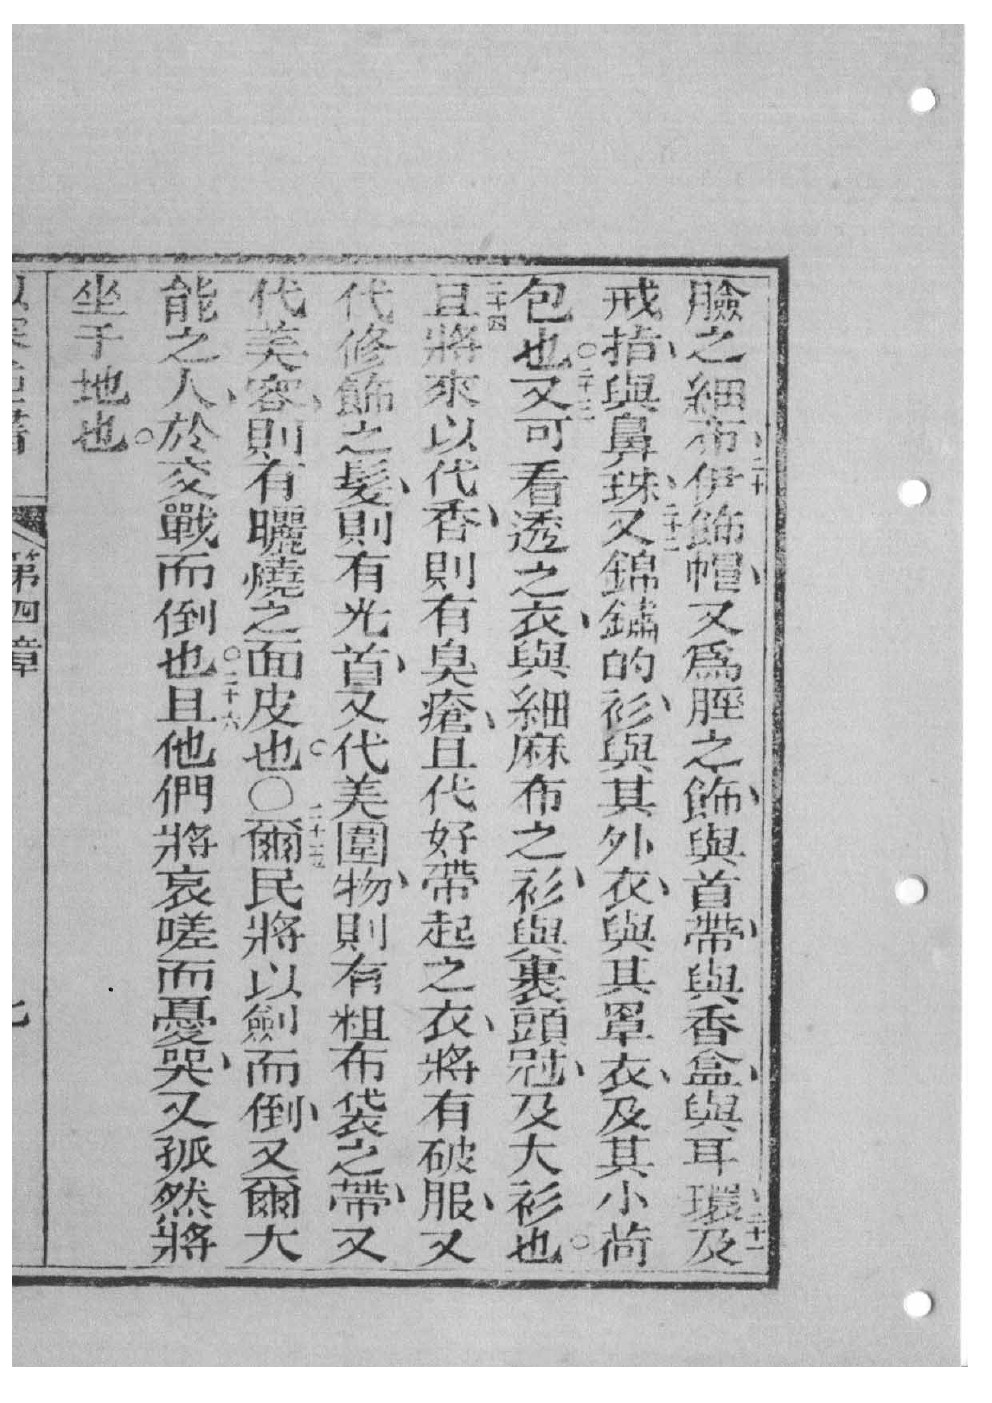 臉之細布、二十伊飾帽、又爲脛之飾、與首帶、與香盒、與耳環、二十一及
戒指、與鼻珠、二十二又錦鏽的衫、與其外衣、與其罩衣、及其小荷
包也。二十三又可看透之衣、與細麻布之衫、與裹頭冠、及大衫也。
二十四且將來以代香、則有臭瘡、且代好帶起之衣、將有破服、又
代修飾之髮、則有光首、又代美圍物、則有粗布袋之帶、又
代美容、則有曬燒之面皮也。○二十五爾民將以劍而倒、又爾大
能之人、於交戰而倒也。二十六且他們將哀嗟而憂哭、又孤然將
坐于地也。
第四章